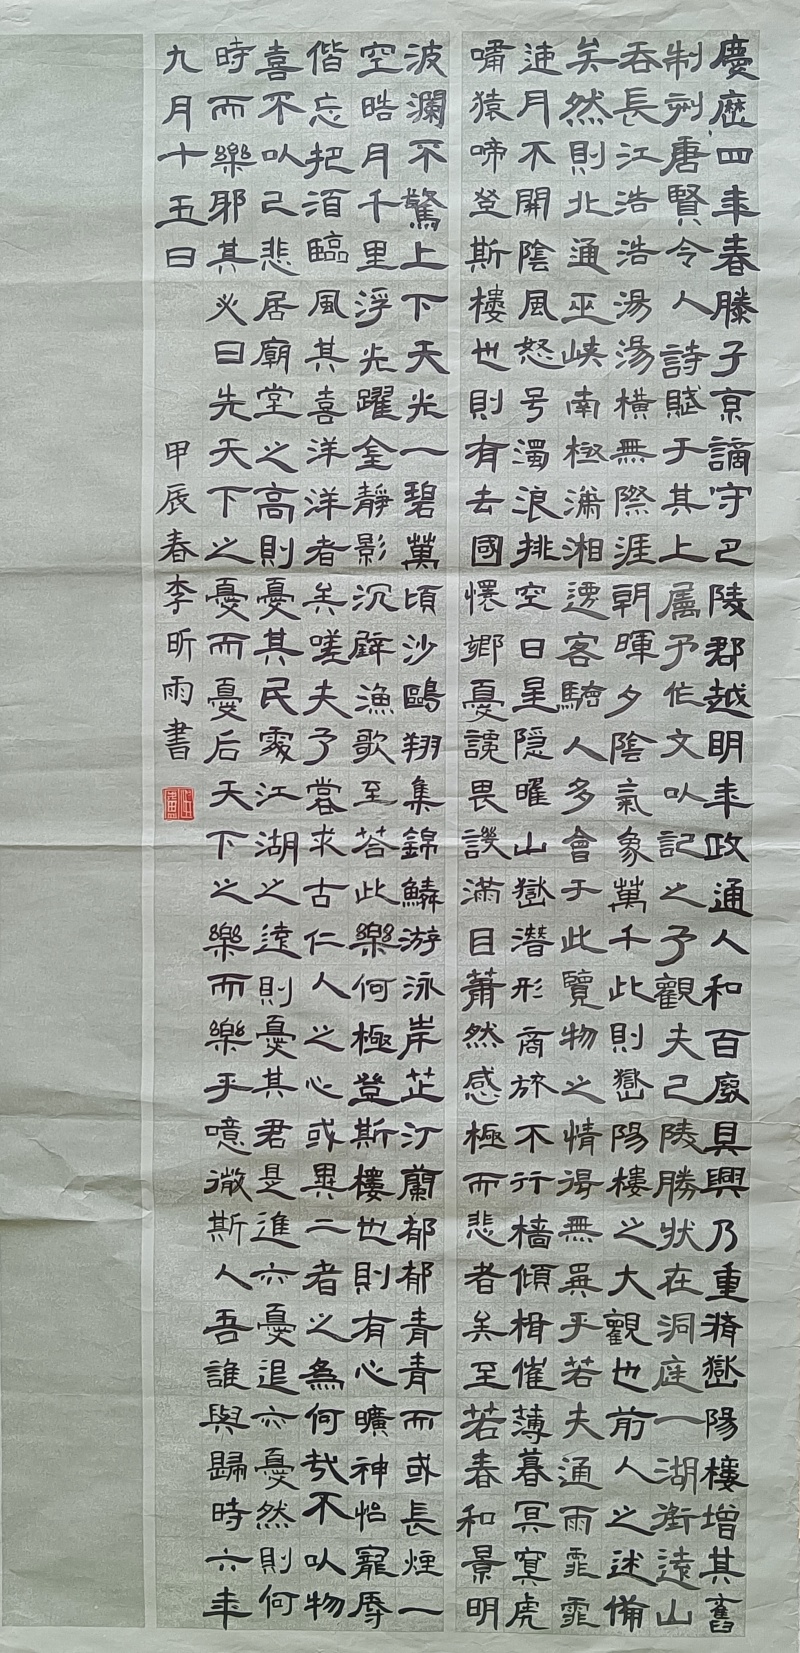 慶歷四年春滕子京謫守巴陵郡越明年政通人和百廢具興乃重脩嶽陽樓增其舊
制刻唐賢令人詩賦于其上属予作文以記之予觀夫巴陵勝狀在洞庭一湖銜遠山
吞長江浩浩湯湯橫無際涯朝暉夕陰氣象萬千此則嶽陽樓之大觀也前人之述備
矣然則北通巫峽南極瀟湘遷客騷人多會于此覽物之情得無異乎若夫通雨霏霏
連月不開陰風怒号濁浪排空日星隐曜山嶽潛形商旅不行檣傾楫催薄暮冥冥虎
嘯猿啼登斯樓也則有去國懷鄉憂讒畏譏滿目蕭然感極而悲者矣至若春和景明
波瀾不驚上下天光一碧萬頃沙鷗翔集錦鱗游泳岸芷汀蘭郁郁青青而或長煙一
空皓月千里浮光躍金靜影沉壁漁歌至荅此樂何極登斯樓也則有心曠神怡寵辱
偕忘把酒臨風其喜洋洋者矣嗟夫予嘗求古仁人之心或異二者之為何哉不以物
喜不以己悲居廟堂之高則憂其民處江湖之遠則憂其君是進亦憂退亦憂然則何
時而樂耶其必曰先天下之憂而憂后天下之樂而樂乎噫微斯人吾誰與歸時六年
九月十五日
甲辰春李昕雨書